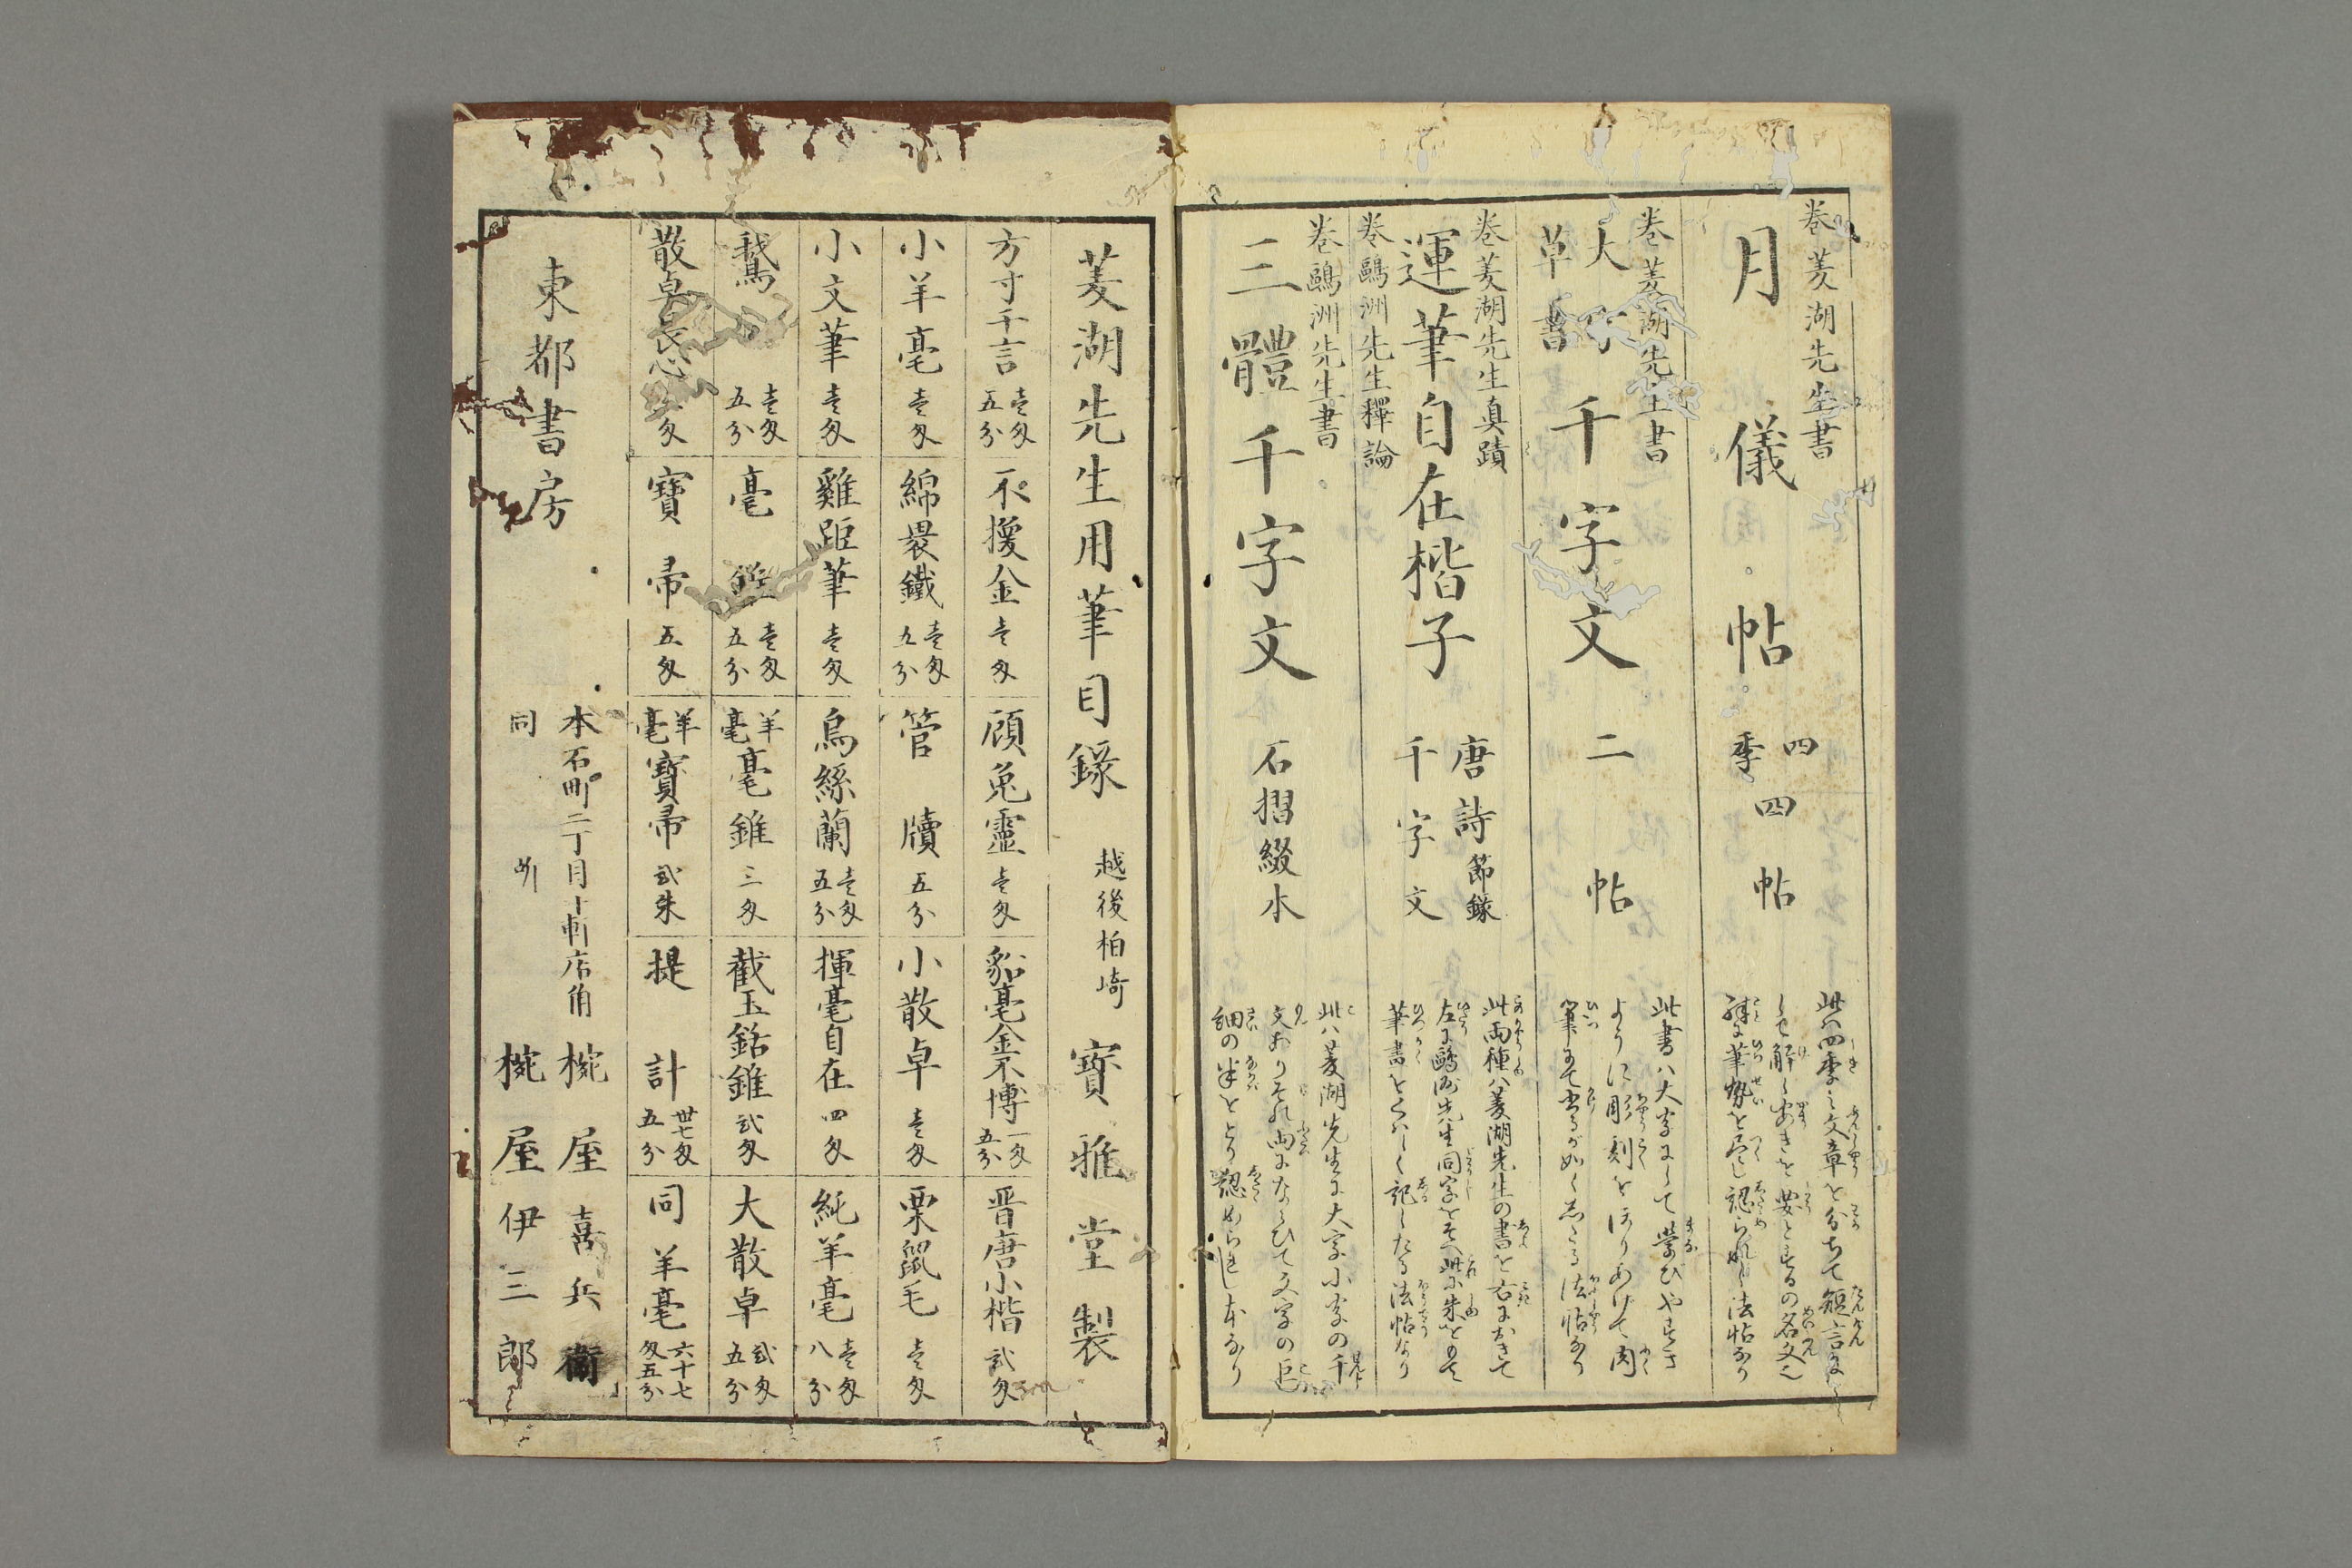 巻菱湖先生書
月儀帖
四季
四帖
此ハ四季之文章を分ちて短言に
巻菱湖先生書
大字
草書
千字文
二帖
此書ハ大字にして学びやすき
ように彫刻をほりあげて肉
筆にて書るが如くなる法帖なり
巻菱湖先生真蹟
運筆自在楷子
巻鷗洲先生釋論
唐詩節錄
千字文
此両種ハ菱湖先生の書を右におきて
巻鷗洲先生書
三體千字文
石摺綴本
此ハ菱湖先生に大字小字の千
文ありそれ両にならひて文字の巨
細の半をとり認められし本なり
菱湖先生用筆目錄
越後柏崎
寶雅堂製
方寸千言 壱匁五分
不換金 壱匁
頋兎靈 壱匁
貂毫金不博 一匁五分
晋唐小楷 弐匁
小羊毫 壱匁
綿裹鐵 壱匁五分
管牘 五分
小散卓 壱匁
栗鼠毛 壱匁
小文筆 壱匁
雞距筆 壱匁
烏絲蘭 壱匁五分
揮毫自在 四匁
純羊毫 壱匁八分
鵞 壱匁五分
毫錐 壱匁五分
羊毫毫錐 三匁
截玉銛錐 弐匁
大散卓 弐匁五分
散卓長心 匁
寶帚 五匁
羊毫寶帚 弐朱
提計 丗七匁五分
同羊毫 六十七匁五分
東都書房
本石町二丁目十軒店角
椀屋喜兵衞
同所
椀屋伊三郎